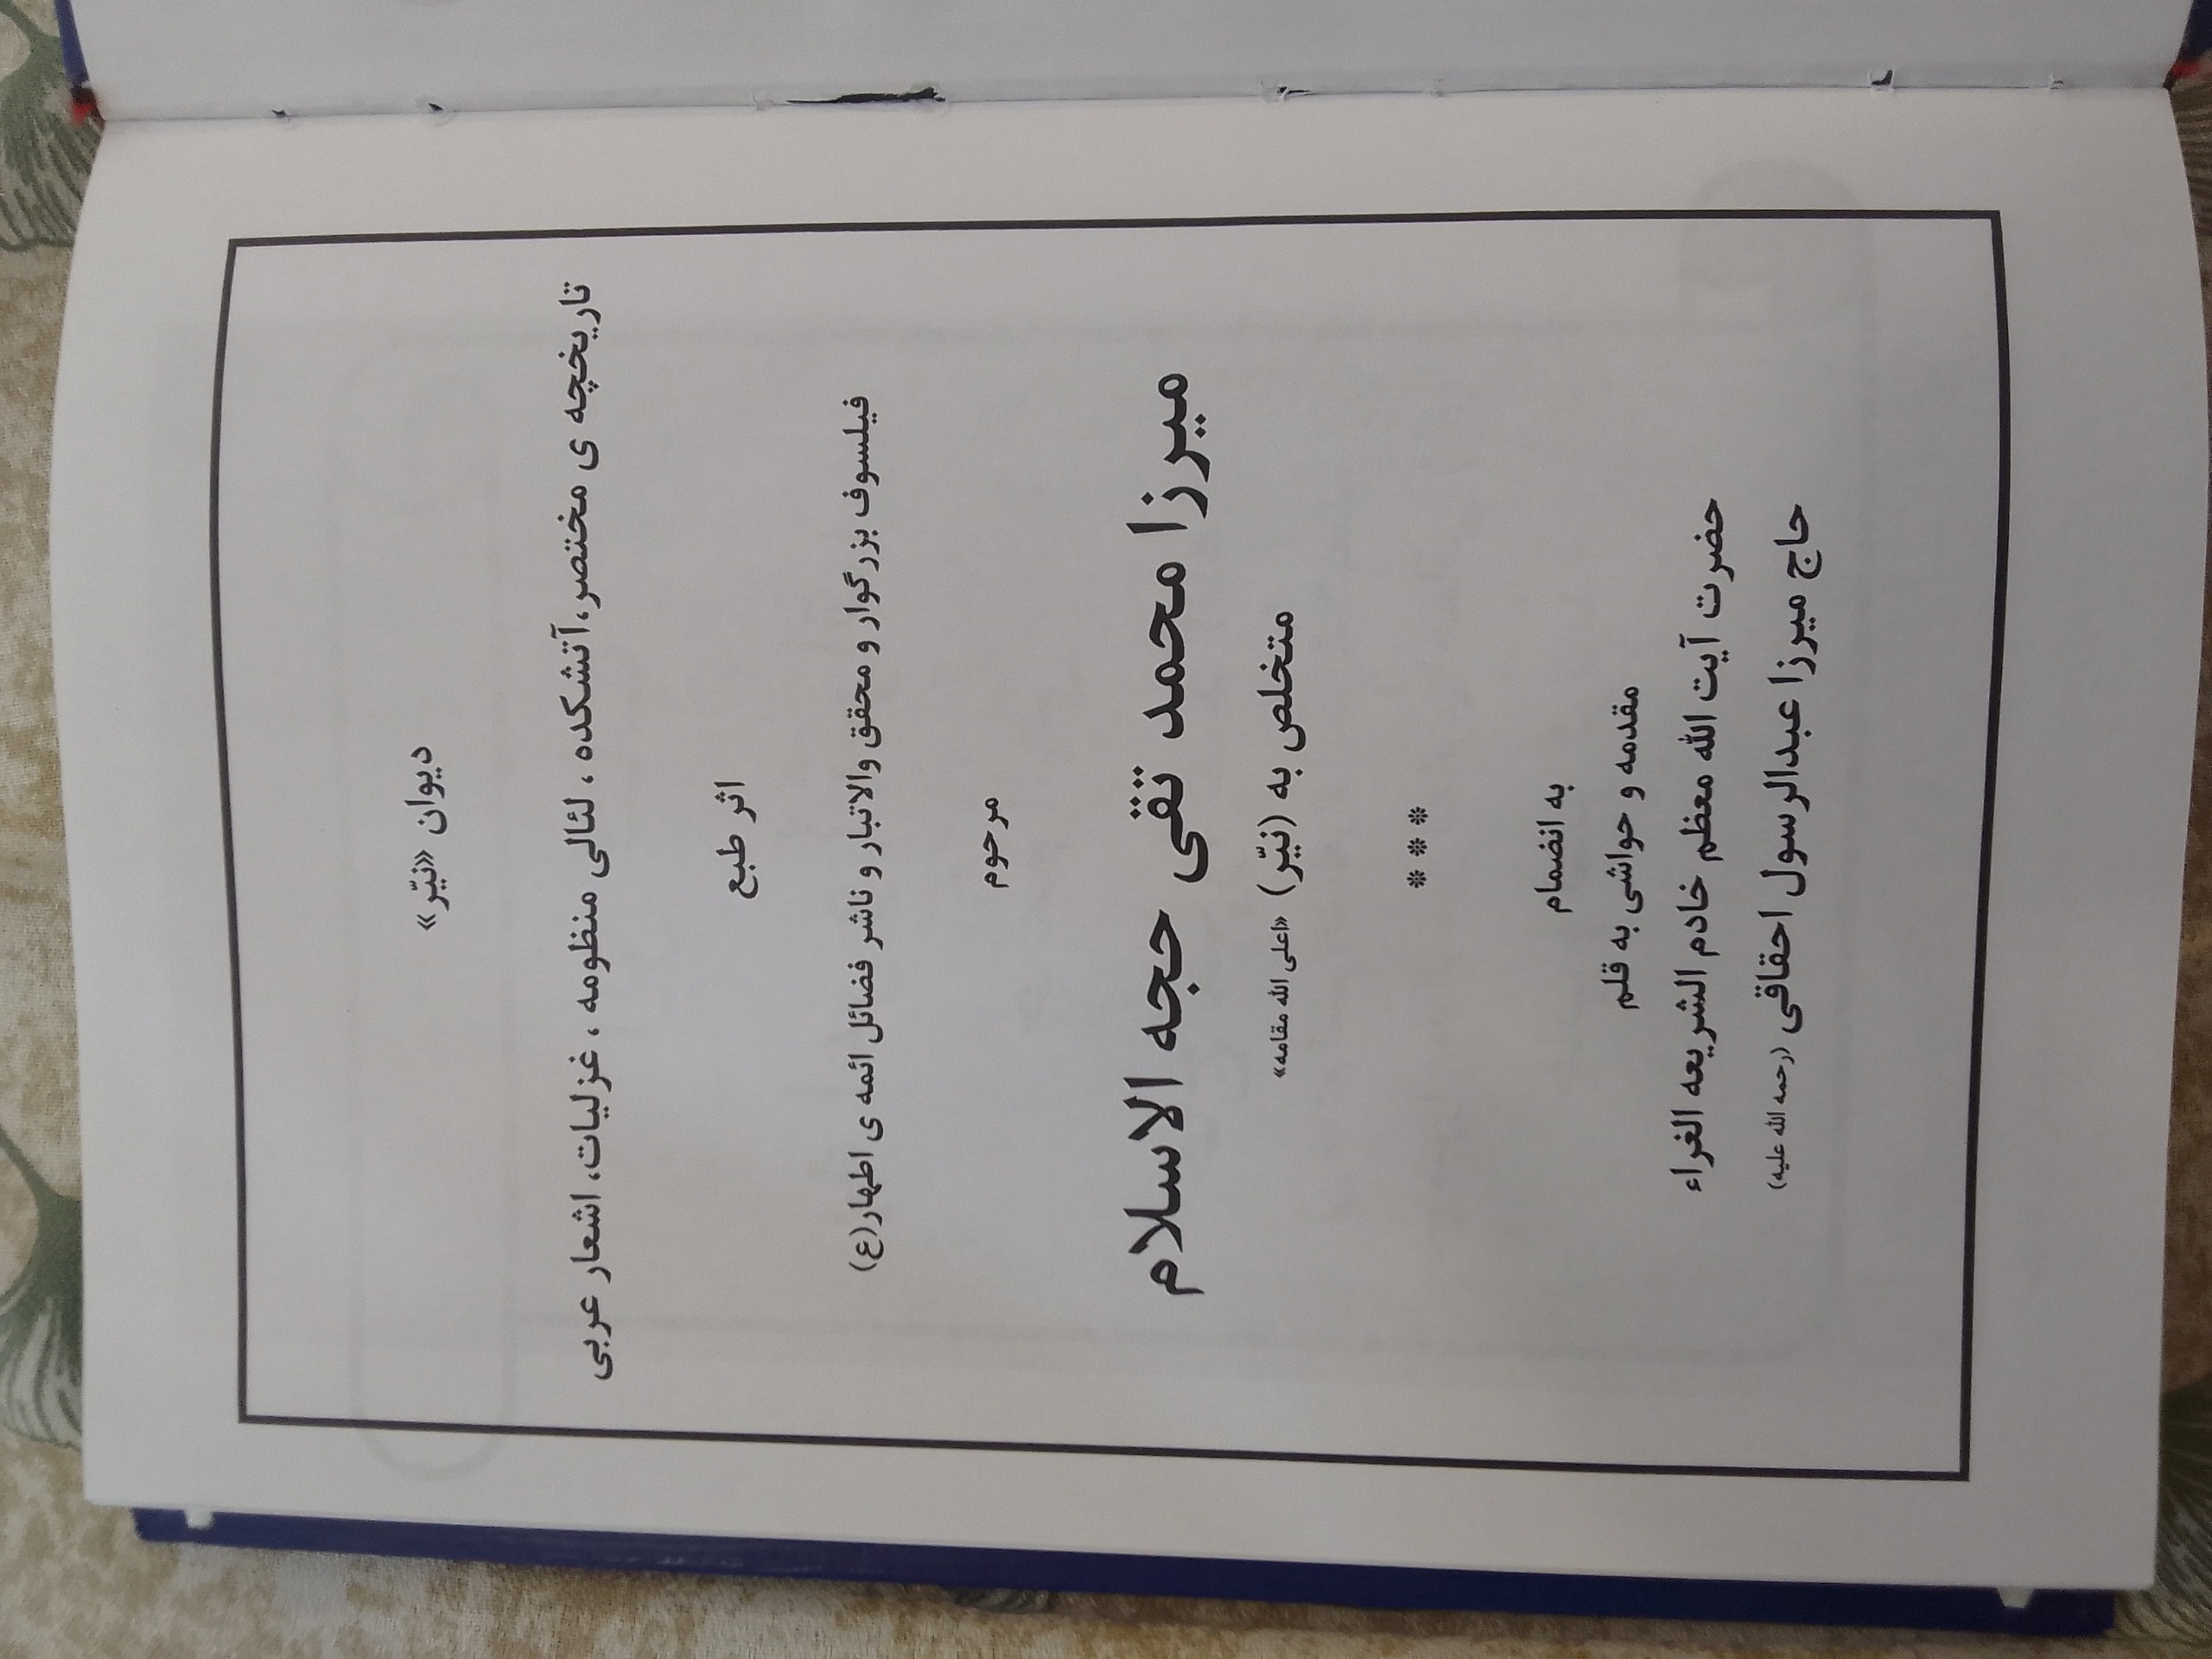 دیوان «نیّر»
تاریخچه ی مختصر، آتشکده ، لئالی منظومه ، غزلیات، اشعار عربی
اثر طبع
فیلسوف بزرگوار و محقق والاتبار و ناشر فضائل ائمه ی اطهار(ع)
مرحوم
میرزا محمد تقی حجه الاسلام
متخلص به (نیّر) «اعلی الله مقامه»
* * *
به انضمام
مقدمه و حواشی به قلم
حضرت آیت الله معظم خادم الشریعه الغراء
حاج میرزا عبدالرسول احقاقی (رحمه الله علیه)